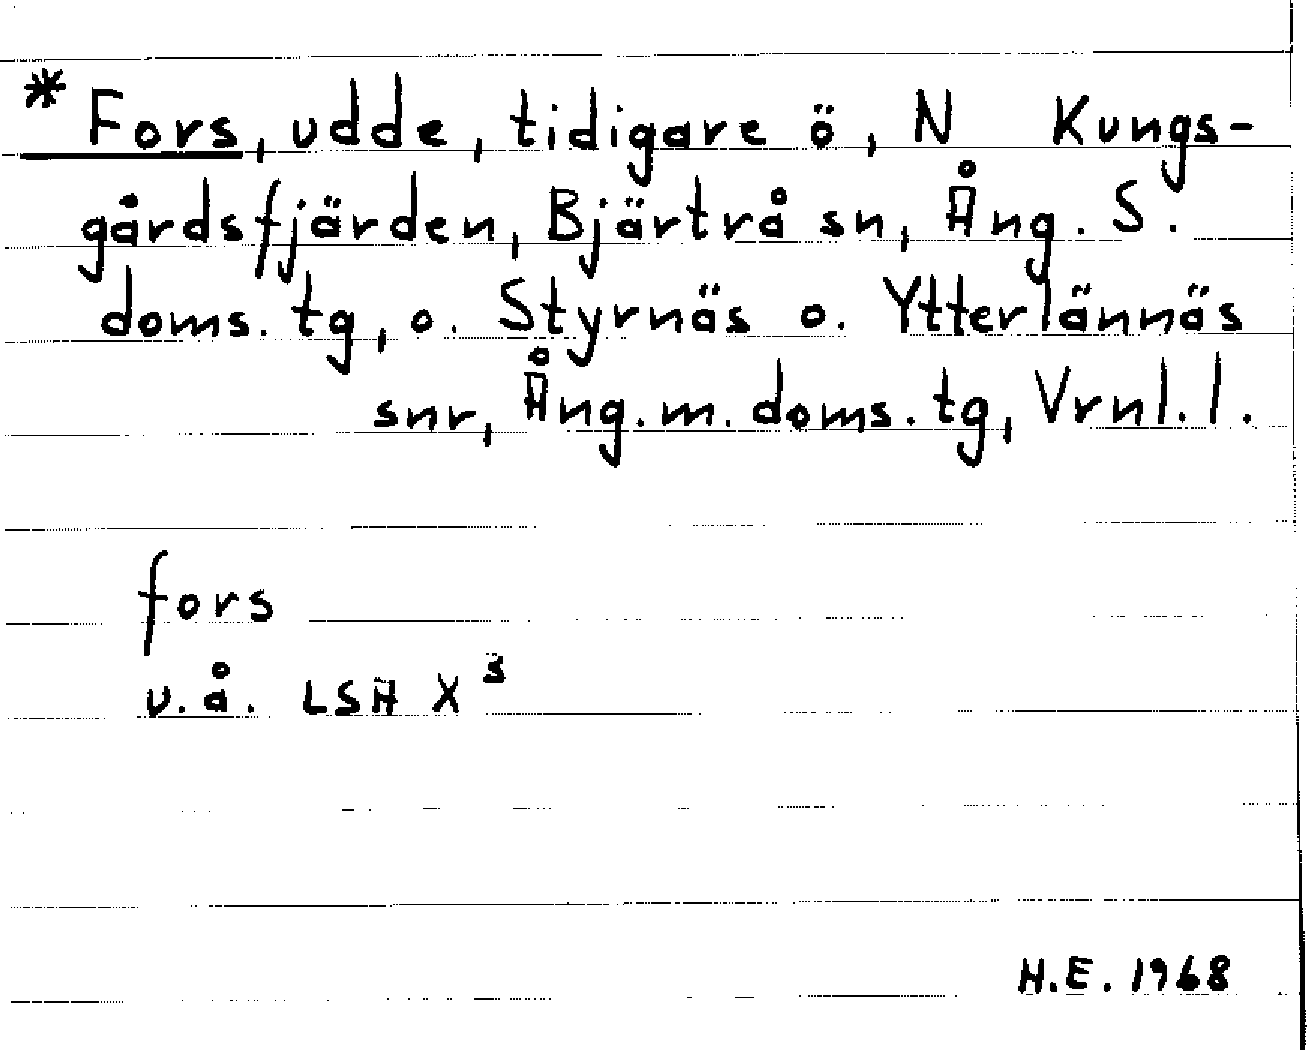 * Fors, udde, tidigare ö, N Kungs-
gårdsfjärden, Bjärtrå sn, Ång. S.
doms. tg, o. Styrnäs o. Ytterlännäs
snr, Ång. m. doms. tg, Vrnl. l.
fors
u. å. LSH X s
H.E. 1968